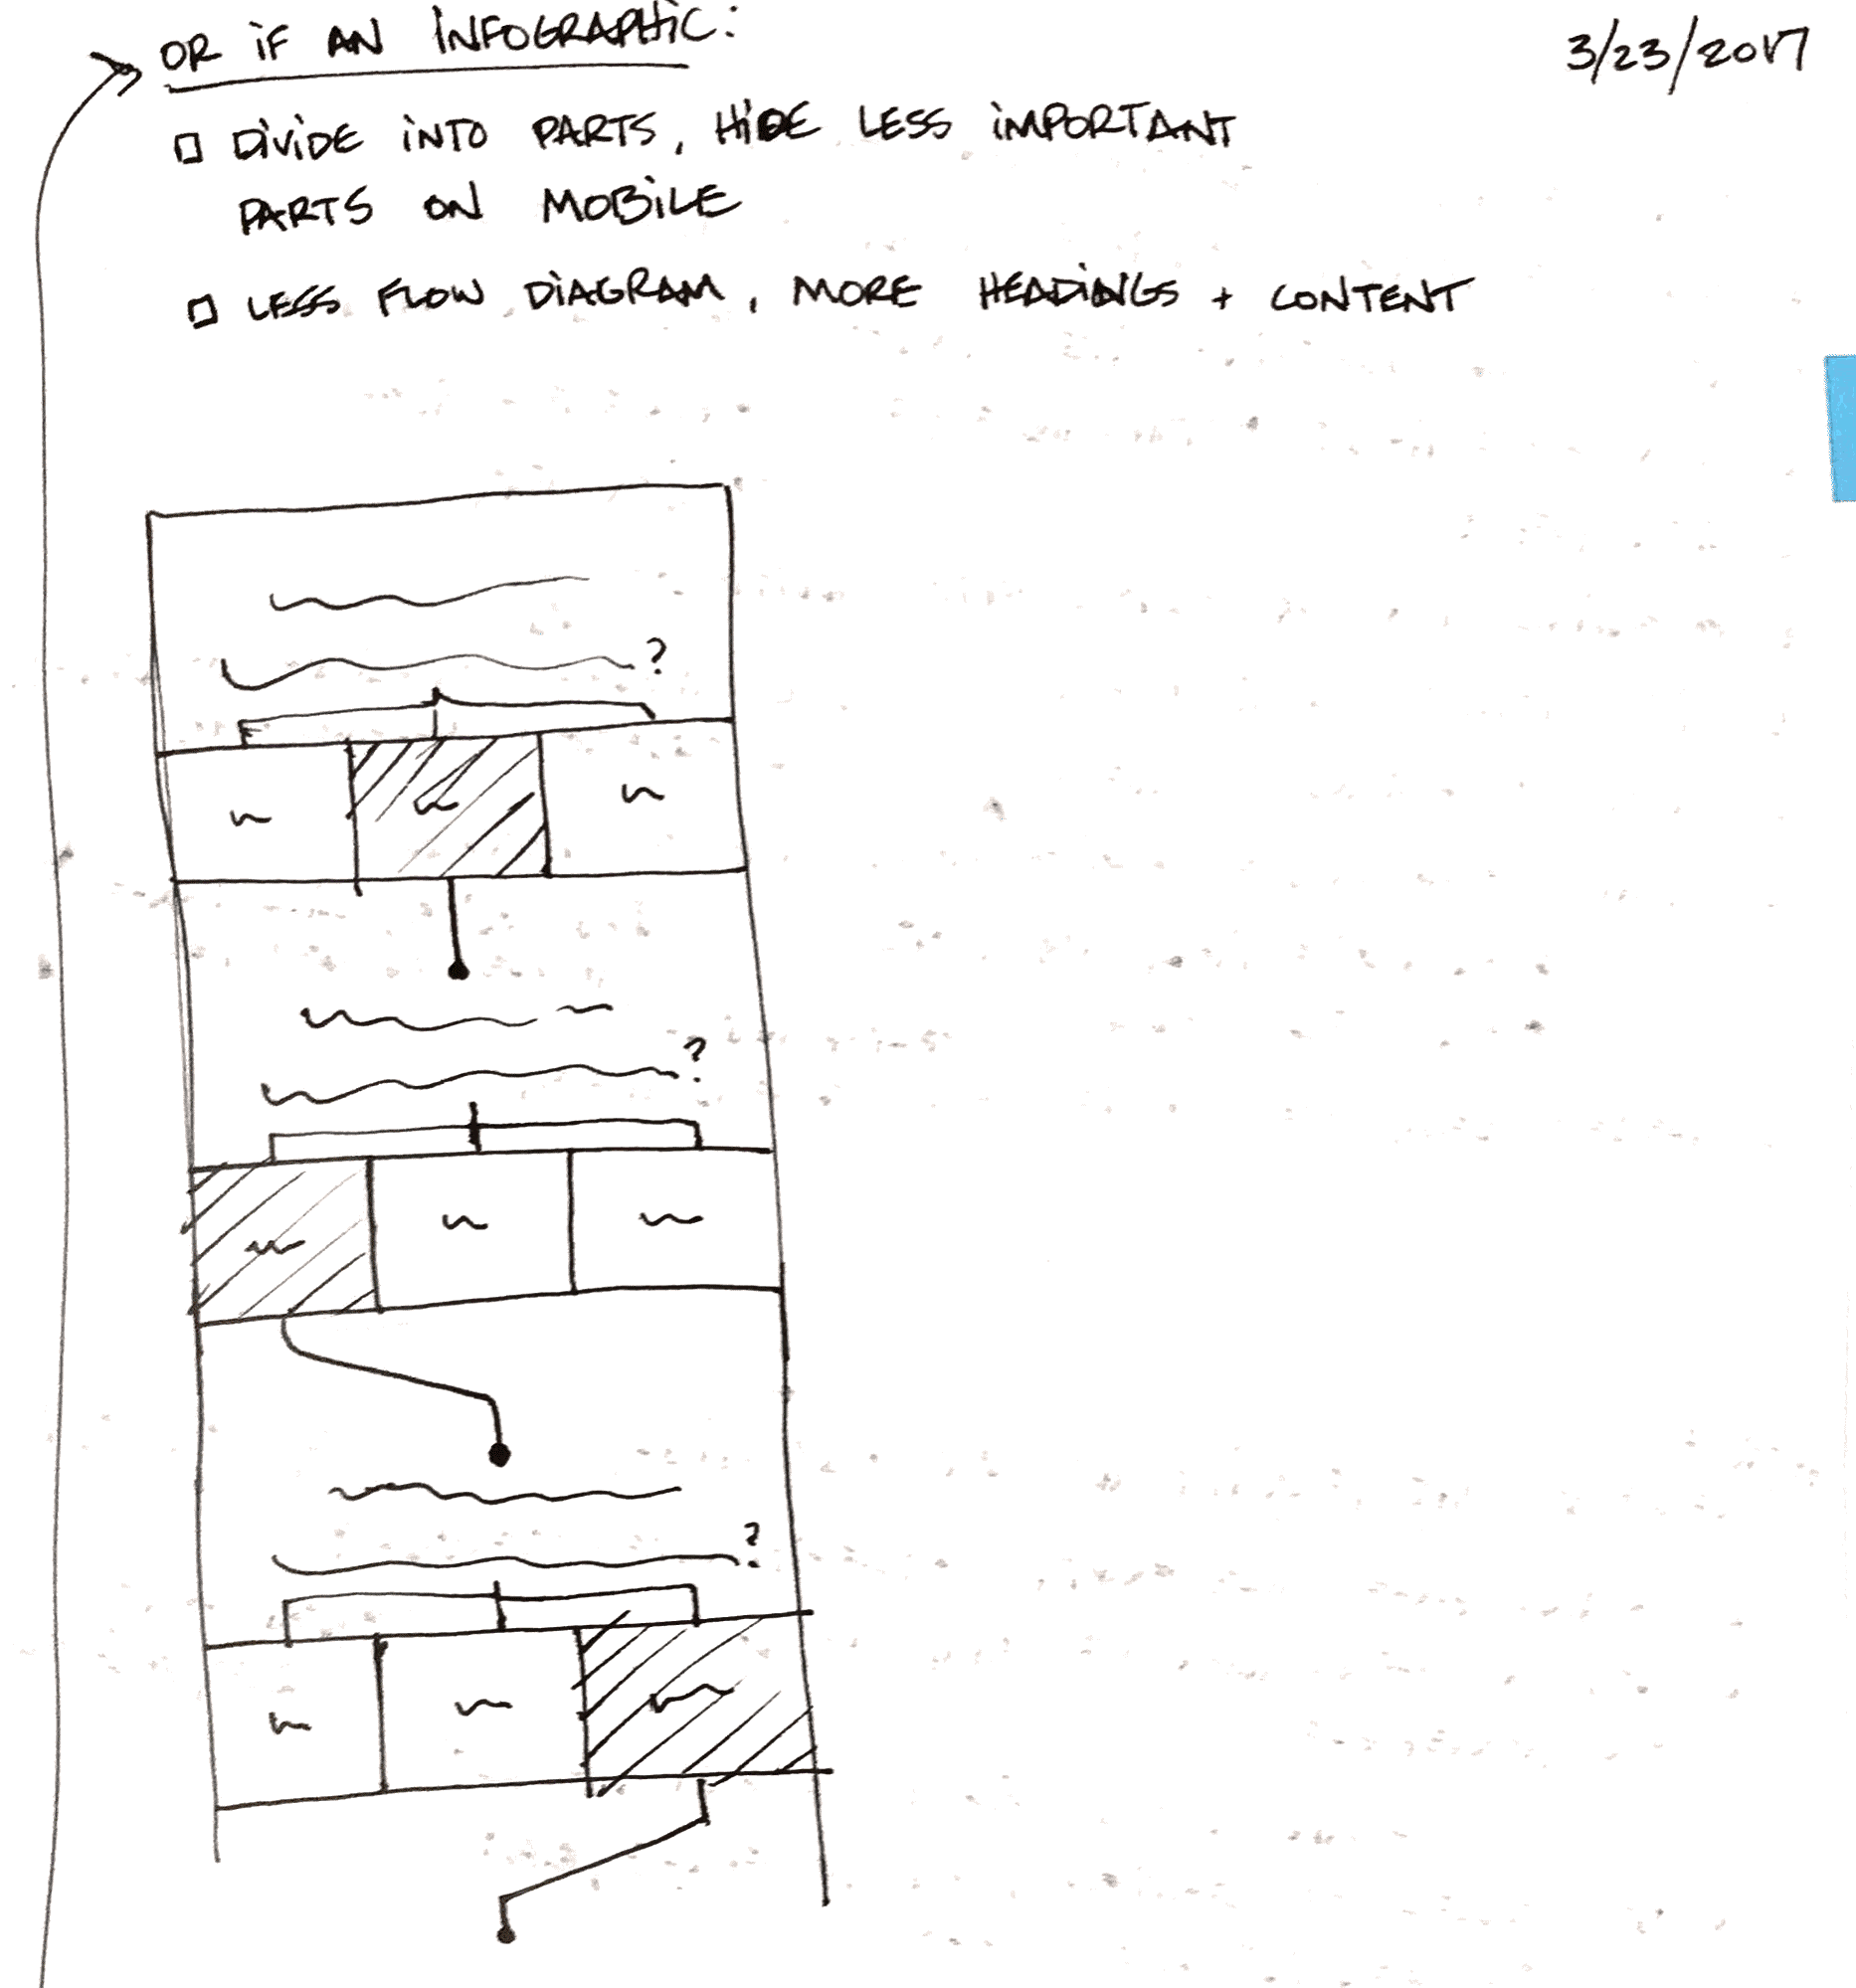 OR iF AN iNFOGRAPHiC:
3/23/2017
DiViDE iNTO PARTS, HiDE LESS iMPORTANT
PARTS ON MOBiLE
LESS FLOW DiAGRAM, MORE HEADiNGS + CONTENT
?
?
?